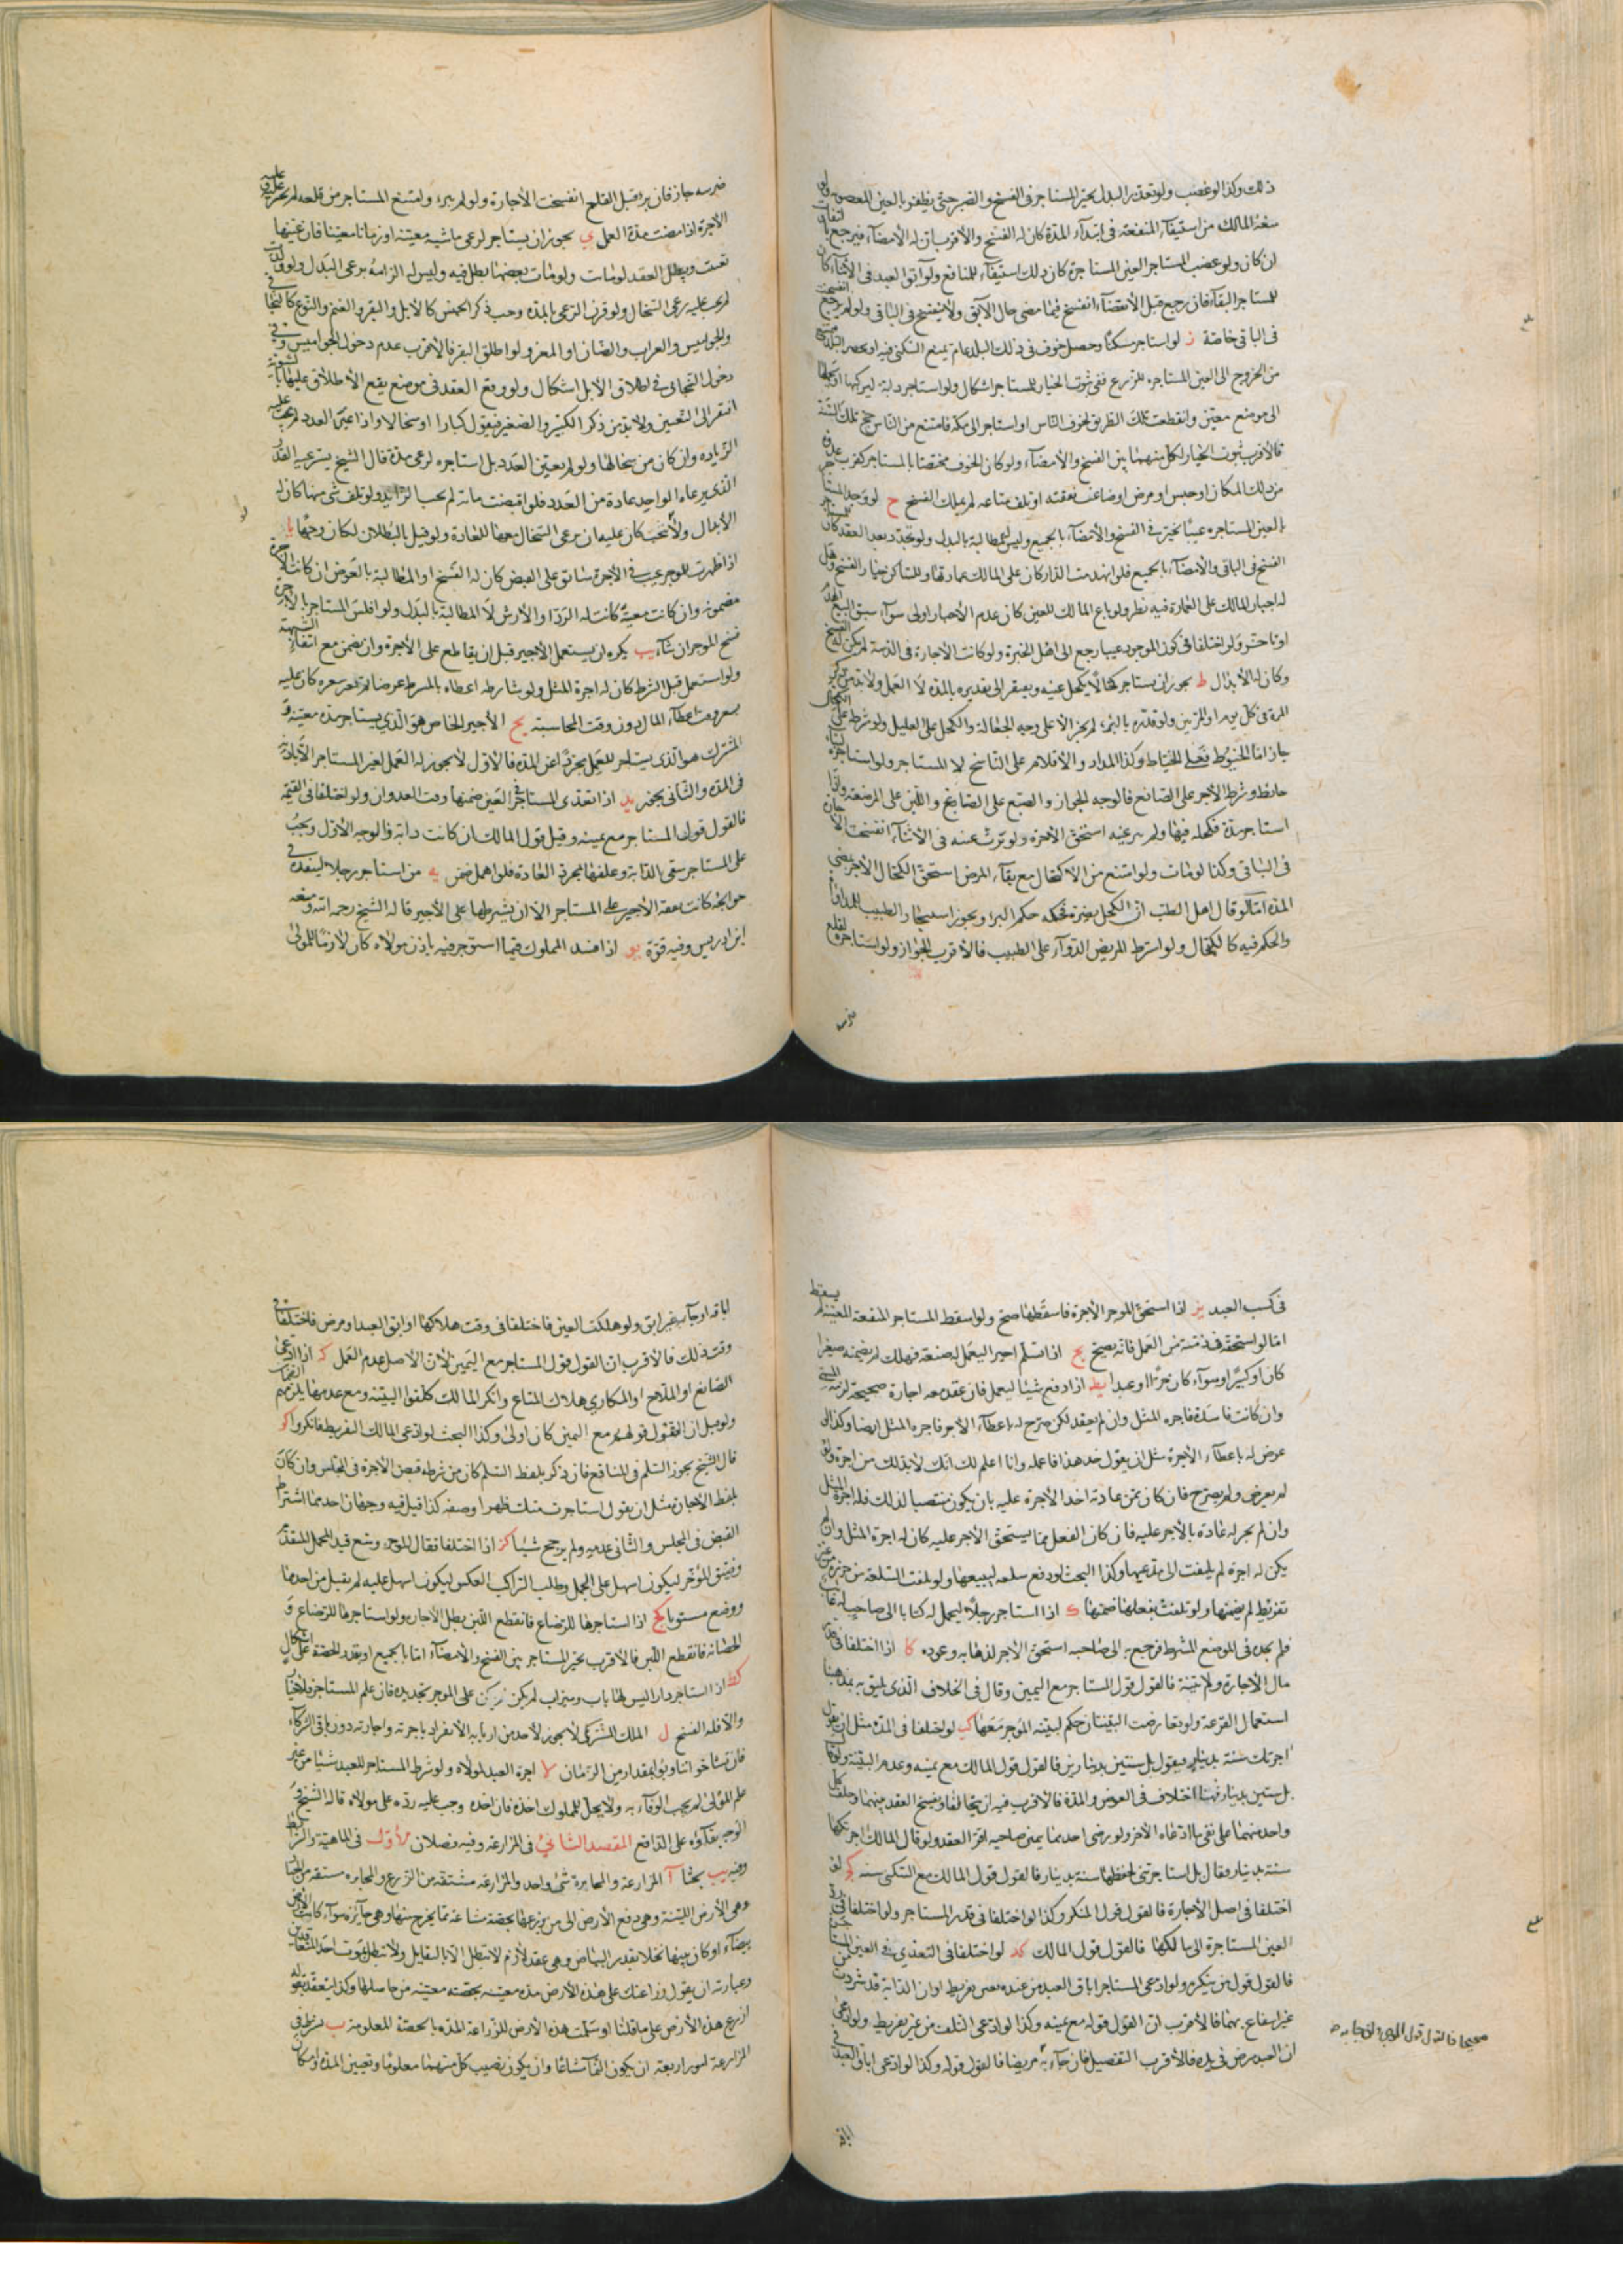 ذلك وكذا لو غصب ولو تعذر البدل تخير المستاجر فى الفسخ والصبر حتى يظفر بالعين المغصوبة ولو
منعه المالك من استيفاء المنفعة فى ابتداء المدة كان له الفسخ والأقرب ان له الأمضاء فيرجع بالتفاوت
ان كان ولو غصب المستاجر العين المستاجرة كان ذلك استيفاء للمنافع ولو آبق العبد فى الأثناء كان
للمستاجر البقاء فان رجع قبل الأنقضاء انفسخ فيما مضى حال الآبق ولا ينفسخ فى الباقى ولو لم يرجع انفسخت
فى الباقى خاصة ز لو استاجر مسكنا وحصل خوف فى ذلك البلد عام تمنع السكنى فيه او يحصر البلد فيمتنع
من الخروج الى العين المستاجره للزرع ففى ثبوت الخيار للمستاجر اشكال ولو استاجر دابة ليركبها او يحملها
الى موضع معين وانقطعت تلك الطريق لخوف الناس او استاجر الى مكة فامتنع من الناس حج تلك السنة
فالأقرب ثبوت الخيار لكل منهما بين الفسخ والأمضاء ولو كان الخوف مختصا بالمستاجر كقرب عدوه
من ذلك المكان او حبس او مرض او ضاعت نفقته او تلف متاعه لم يملك الفسخ ح لو وجد المستاجر
بالعين المستاجره عيبا تخير فى الفسخ والأمضاء بالجميع وليس المطالبة بالبدل ولو تجدد بعد العقد كان للمستاجر
الفسخ فى الباقى والأمضاء بالجميع فلو انهدمت الدار كان على المالك عمارتها وللساكن خيار الفسخ وهل
له اجبار المالك على العمارة فيه نظر ولو باع المالك العين كان عدم الأجبار اولى سواء سبق البيع الهدم
او تاخر ولو اختلفا فى كون الموجود عيبا رجع الى اهل الخبرة ولو كانت الأجارة فى الذمة لم يكن له الفسخ
وكان له الأبدال ط يجوز ان يستاجر كحالا يكحل عينه ويفتقر الى تقديره بالمدة لا العمل ولا بد من ذكر
المرة فى كل يوم او المرتين ولو قدره بالبرء لم يجز الا على وجه الجعالة والكحل على العليل ولو شرط على الكحال
جاز اما الخيوط فعلى الخياط وكذا المداد والأقلام على الناسخ لا المستاجر ولو استاجره لبناء
حائط وشرط الآجر على الصانع فالوجه الجواز والصبغ على الصابغ واللبن على المرضعة واذا
استاجر مدة فكحله فيها ولم يبر عينه استحق الأجرة ولو برئت عينه فى الأثناء انفسخت الأجارة
فى الباقى وكذا لو مات ولو امتنع من الأكتحال مع بقاء المرض استحق الكحال الأجر بمضى
المدة اما لو قال اهل الطب ان الكحل يضره فحكمه حكم البرء ويجوز استيجار الطبيب للمداواة
والحكم فيه كالكحال ولو اشترط المريض الدواء على الطبيب فالأقرب الجواز ولو استاجره لقلع
ضرسه
ضرسه جاز فان برا قبل القلع انفسخت الأجارة ولو لم يبرء وامتنع المستاجر من قلعه لم يجبر عليه وعليه
الأجرة اذا مضت مدة العمل ى يجوز ان يستاجر لرعى ماشية معينة او زمانا معينا فان عينها
تعينت ويبطل العقد لو ماتت ولو مات بعضها بطل فيه وليس له الزامه برعى البدل ولو توالدت
لم يجب عليه رعى السخال ولو قرن الرعى بالمدة وجب ذكر الجنس كالأبل والبقر والغنم والنوع كالبخاتى
والجواميس والعراب والضان او المعز ولو اطلق البقر فالأقرب عدم دخول الجواميس وفى
دخول البخاتى فى اطلاق الأبل اشكال ولو وقع العقد فى موضع يقع الأطلاق عليهما بالسوية
افتقر الى التعيين ولا بد من ذكر الكبير والصغير فيقول كبارا او سخالا واذا عين العدد لم يجب عليه
الزيادة وان كان من سخالها ولو لم يعين العدد بل استاجره لرعى مدة قال الشيخ يسترعيه القدر
الذى يرعاه الواحد عادة من العدد فلو اقبضت مائة لم يجب الزايد ولو تلف شى منها كان له
الأبدال ولا نتجت كان عليه ان يرعى السخال معها للعادة ولو قيل بالبطلان لكان وجها يا
اذا ظهرت للموجر عيب فى الأجرة سابق على القبض كان له الفسخ او المطالبة بالعوض ان كانت الأجرة
مضمونة وان كانت معينة كانت له الرد او الأرش لا المطالبة بالبدل ولو افلس المستاجر بالأجرة
فسخ الموجر ان شاء يب يكره ان يستعمل الأجير قبل ان يقاطع على الأجرة وان يضمن مع انتفاء التهمة
ولو استعمل قبل الشرط كان له اجرة المثل ولو شارطه اعطاه بالشرط عرضا لم يقرر سعره كان عليه
بسعر وقت اعطاء المال دون وقت المحاسبة يج الأجير الخاص هو الذى يستاجر مدة معينة و
المشترك هو الذى يستاجر للعمل مجردا عن المدة فالأول لا يجوز له العمل لغير المستاجر الا باذنه
فى المدة والثانى يجوز يد اذا تعدى المستاجر فى العين ضمنها وقت العدوان ولو اختلفا فى القيمة
فالقول قول المستاجر مع يمينه وقيل قول المالك ان كانت دابة والوجه الأول ويجب
على المستاجر سقى الدابة وعلفها بمجرى العادة فلو اهمل ضمن يه من استاجر رجلا لينفذه فى
حوائجه كانت نفقة الأجير على المستاجر الا ان يشرطها على الأجير قاله الشيخ رحمه الله ومنعه
ابن ادريس وفيه قوة يو اذا افسد المملوك فيما استوجر فيه باذن مولاه كان لازما للمولى
فى كسب العبد يز اذا استحق الموجر الأجرة فاسقطها صح ولو اسقط المستاجر المنفعة المعينة لم يسقط
اما لو استحقه فى ذمته من العمل فانه يصح يح اذا تسلم اجيرا ليعمل له صنعة فهلك لم يضمنه صغيرا
كان او كبيرا وسواء كان حرا او عبدا يط اذا دفع شيئا ليعمل فان عقد معه اجارة صحيحة لزمه المسمى
وان كانت فاسدة فاجره المثل وان لم يعقد لكن صرح له باعطاء الأجر فاجره المثل ايضا وكذا لو
عرض له باعطاء الأجرة مثل ان يقول خذ هذا فاعمله وانا اعلم لك انك لا بذلك من اجرة ولو
لم يعرض ولم يصرح فان كان ممن عادته اخذ الأجرة عليه بان يكون منتصبا لذلك فله اجرة المثل
وان لم يجر له عادة بالأجر عليه فان كان الفعل مما يستحق الأجر عليه كان له اجرة المثل وان لم
يكن له اجرة لم يلتفت الى مدعيها وكذا البحث لو دفع سلعة ليبيعها ولو تلفت السلعة من حرزه من غير
تفريط لم يضمنها ولو تلفت بفعلها ضمنها ك اذا استاجر رجلا ليحمل له كتابا الى صاحب له غاب
فلم يجده فى الموضع المشترط فرجع به الى صاحبه استحق الأجر لذهابه وعوده كا اذا اختلفا فى قدر
مال الأجارة ولا بينة فالقول قول المستاجر مع اليمين وقال فى الخلاف الذى يليق بمذهبنا
استعمال القرعة ولو تعارضت البينتان حكم لبينة الموجر معها كب لو اختلفا فى المدة مثل ان يقول
اجرتك سنة بدينار فيقول بل سنتين بدينارين فالقول قول المالك مع يمينه وعدم البينة ولو قال
بل سنتين بدينار فهنا اختلاف فى العوض والمدة فالأقرب فيه ان يتحالفا ويفسخ العقد بينهما وحلف كل
واحد منهما على نفى ما ادعاه الآخر ولو رضى احدهما بيمين صاحبه اقر العقد ولو قال المالك اجرتكها
سنة بدينار فقال بل استاجرتنى لحفظها سنة بدينار فالقول قول المالك مع السكنى سنه كج لو
اختلفا فى اصل الأجارة فالقول قول المنكر وكذا لو اختلفا فى قدر المستاجر ولو اختلفا فى رد
العين المستاجرة الى مالكها فالقول قول المالك كد لو اختلفا فى التعدى فى العين المستاجرة
فالقول قول من ينكره ولو ادعى المستاجر اباق العبد من عنده بغير تفريط او ان الدابة قد شردت
غير انتفاع بهما فالأقرب ان القول قوله مع يمينه وكذا لو ادعى التلف من غير تفريط ولو ادعى
ان العبد مرض فى يده فالأقرب التفصيل فان جاء به مريضا فالقول قوله وكذا لو ادعى اباق العبد فى
صحيحا فالقول قول الموجر وان جاء به
اباقه
اباقه او جاء به غير ابق ولو هلكت العين فاختلفا فى وقت هلاكها او ابق العبد او مرض فاختلفا فى
وقت ذلك فالأقرب ان القول قول المستاجر مع اليمين لأن الأصل عدم العمل كه اذا ادعى
الصانع او الملاح او المكارى هلاك المتاع وانكر المالك كلفوا البينة ومع عدمها يلزمهم الغرامة
ولو قيل ان القول قولهم مع اليمين كان اولى وكذا البحث لو ادعى المالك التفريط فانكروا كو
قال الشيخ يجوز السلم فى المنافع فان ذكر بلفظ السلم كان من شرطه قبض الأجرة فى المجلس وان كان
بلفظ الأجارة مثل ان يقول استاجرت منك ظهرا وصفه كذا قيل فيه وجهان احدهما اشتراط
القبض فى المجلس والثانى عدمه ولم يرجح شيئا كز اذا اختلفا فقال الموجر وسع قيد المحمل المقدم
وضيق المؤخر ليكون اسهل على الجمل وطلب الراكب العكس ليكون اسهل عليه لم يقبل من احدهما
ووضع مستويا كح اذا استاجرها للرضاع فانقطع اللبن بطل الأجارة ولو استاجرها للرضاع و
الحضانة فانقطع اللبن فالأقرب تخير المستاجر بين الفسخ والأمضاء اما بالجميع او بقدر الحصة على اشكال
كط اذا استاجر دارا ليس لها باب وميزاب لم يكن على الموجر تجديده فان علم المستاجر فلا خيار
والا فله الفسخ ل الملك المشترك لا يجوز لأحد من اربابه الأنفراد باجرته واجارته دون باقى الشركاء
فان تشاحوا تناوبوا بمقدار من الزمان لا اجرة العبد لمولاه ولو شرط المستاجر للعبد شيئا من غير
علم المولى لم يجب الوفاء به ولا يحل للمملوك اخذه فان اخذه وجب عليه رده على مولاه قاله الشيخ و
الوجه بقاؤه على الدافع المقصد الثانى فى المزارعة وفيه فصلان الأول فى الماهية والشرائط
وفيه يب بحثا آ المزارعة والمخابرة شئ واحد والمزارعة مشتقة من الزرع والمخابره مشتقه من الخبار
وهى الأرض اللينة وهى دفع الأرض الى من يزرعها بحصة مشاعة مما يخرج منها وهى جائزة سواء كانت الأرض
بيضاء او كان بينها نخلا بقدر البياض وهى عقد لازم لا تبطل الا بالتقايل ولا تبطل بموت احد المتعاقدين
وعبارته ان يقول زارعتك على هذه الأرض مدة معينة بحصة معينة من حاصلها وكذا ينعقد بقوله
ازرع هذه الأرض على ما قلنا او سلمت هذه الأرض للزراعة المدة بالحصة المعلومة ب شرط فى
المزارعة امور اربعة ان يكون النماء مشاعا وان يكون نصيب كل منهما معلوما وتعيين المدة وامكان